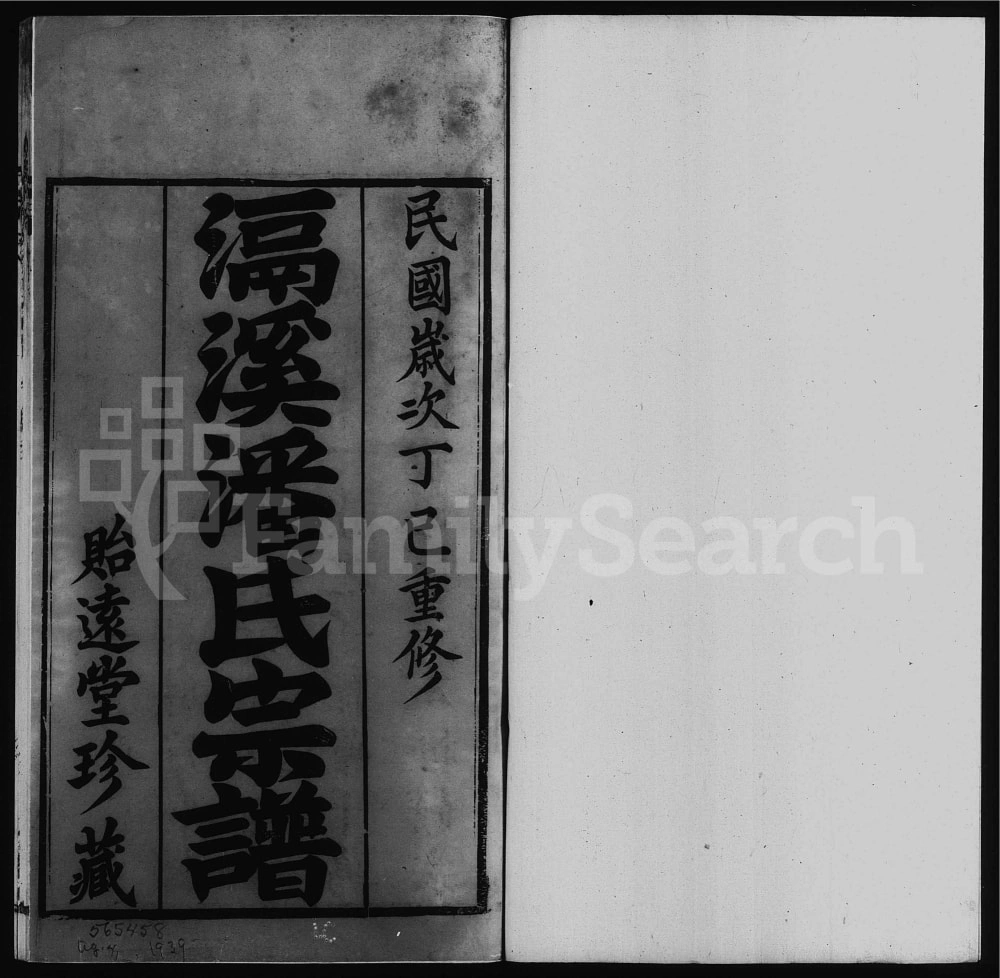 民國歲次丁巳重修
滆溪潘氏宗譜
貽遠堂珍藏
565458
1939
FamilySearch